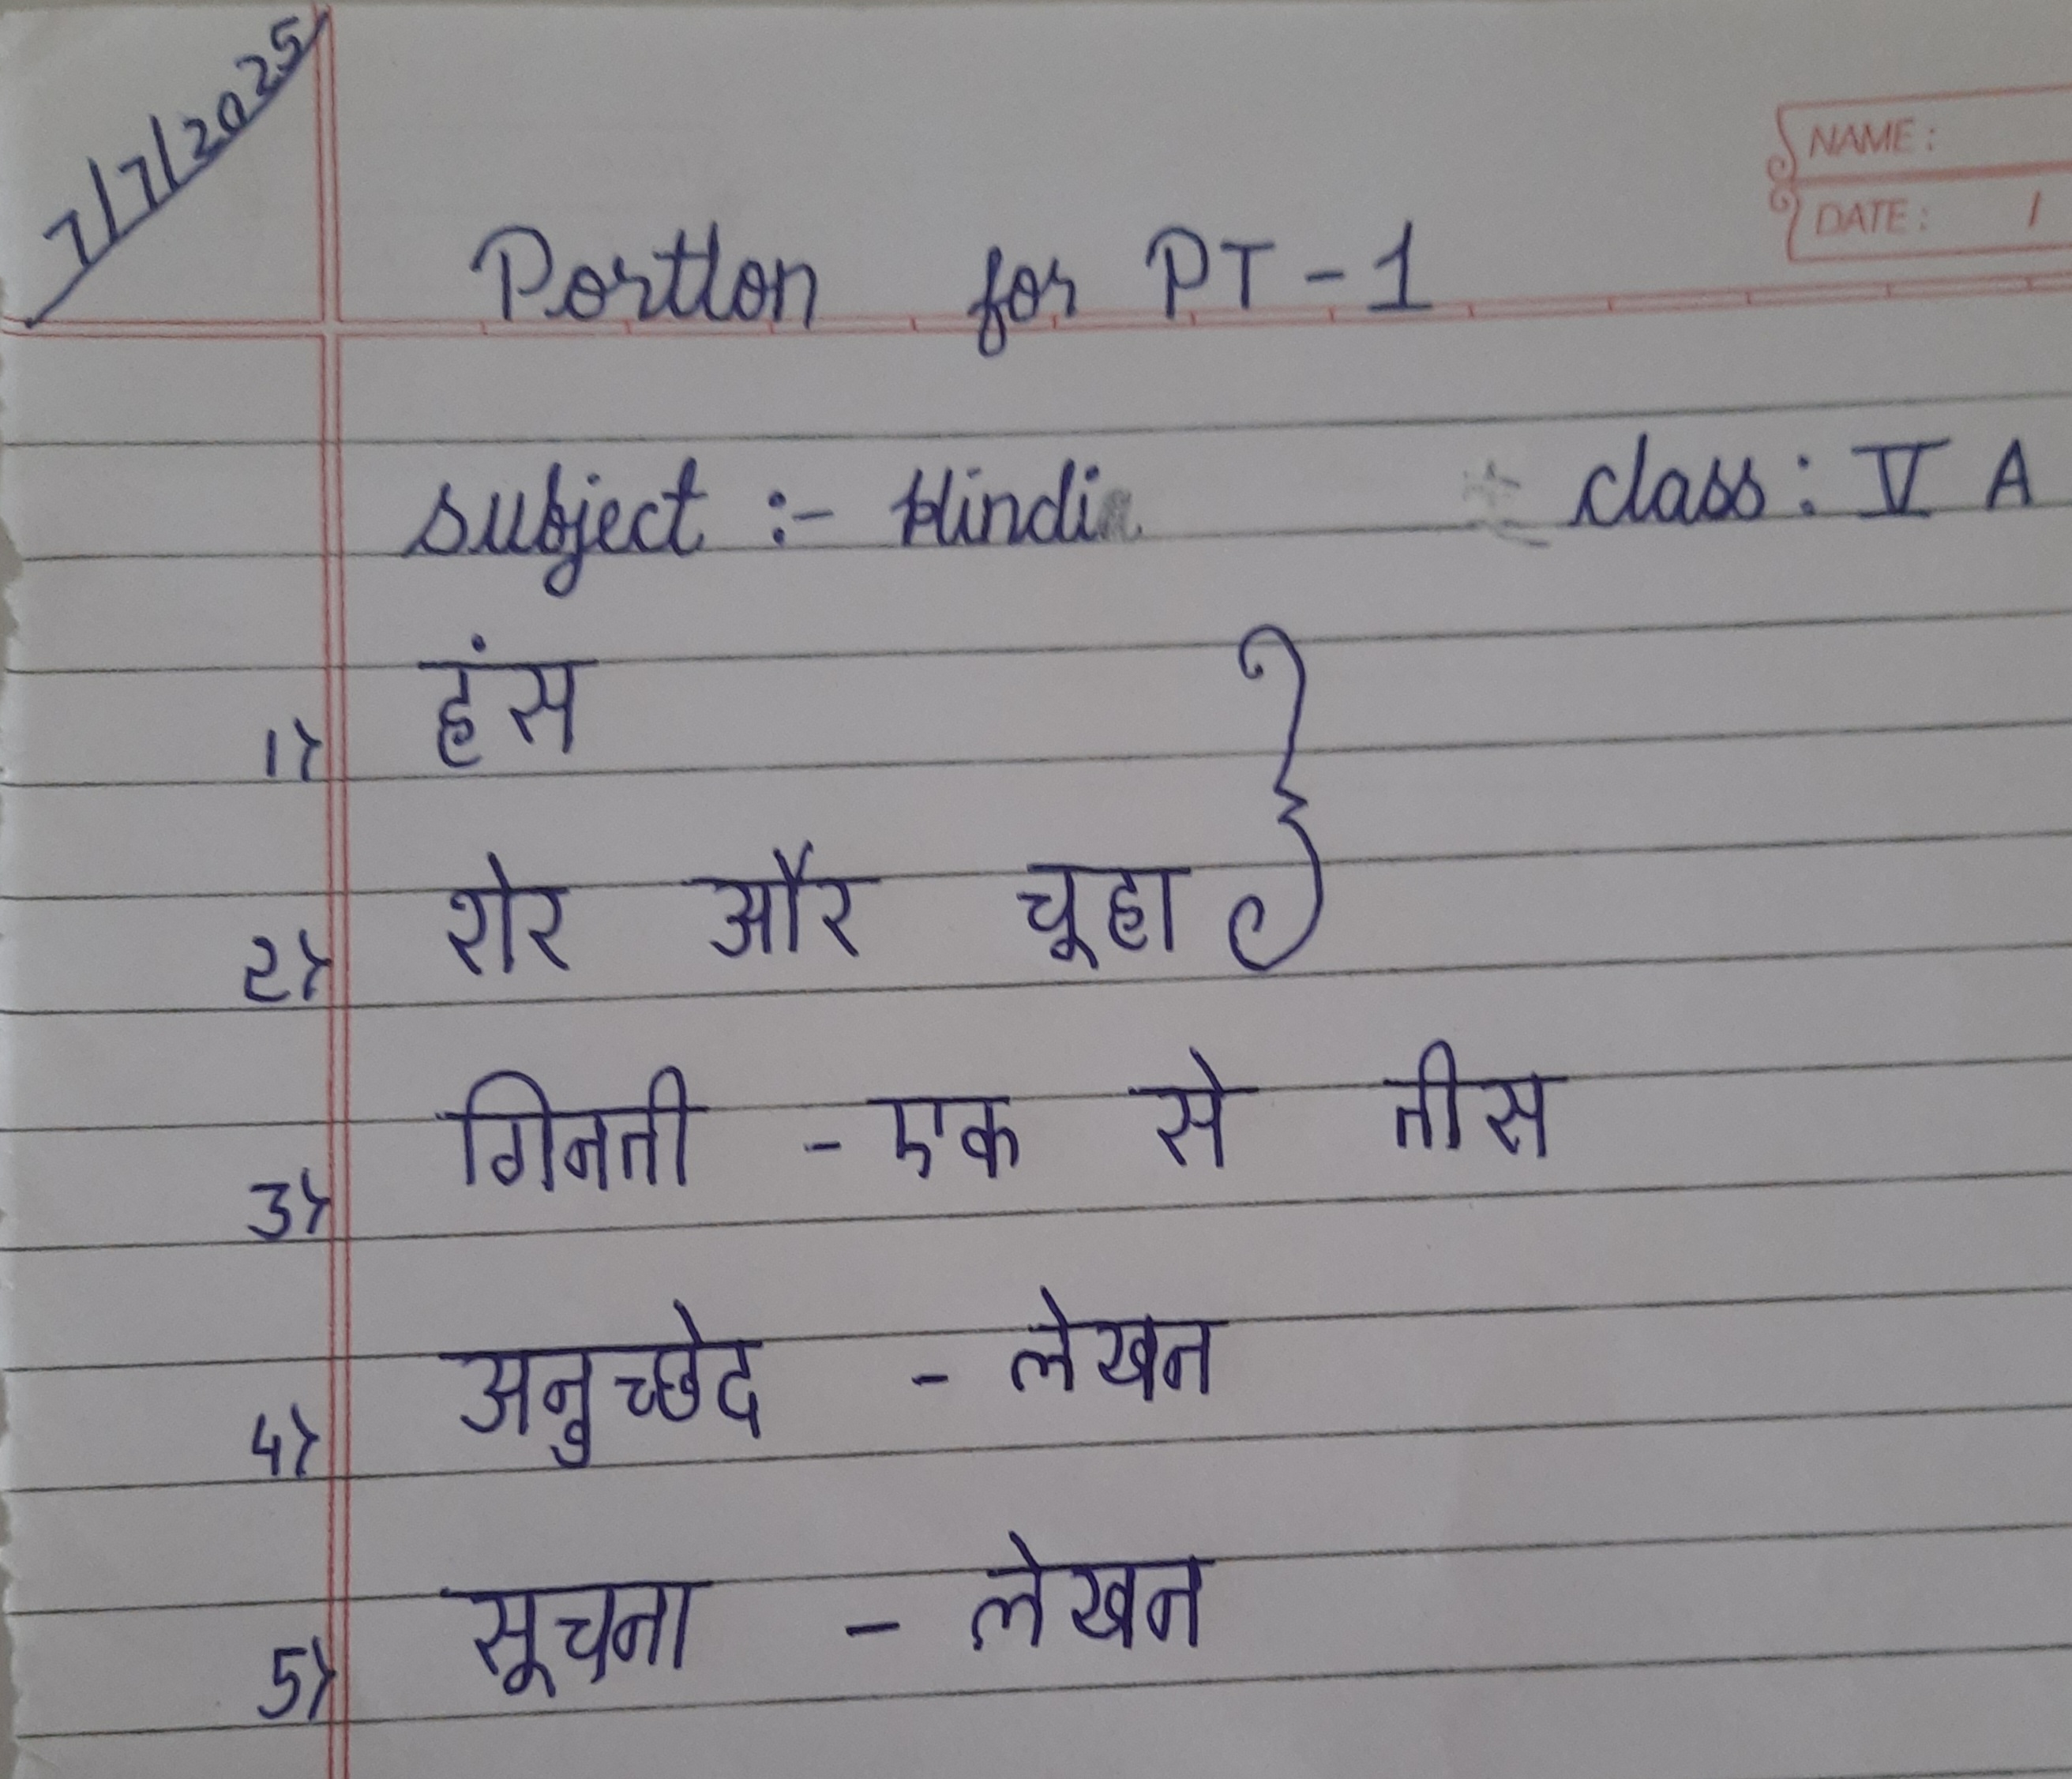 7/7/2025
NAME:
DATE: /
Portion for PT-1
subject :- Hindi class: V A
1) हंस
2) शेर और चूहा }
3) गिनती - एक से तीस
4) अनुच्छेद - लेखन
5) सूचना - लेखन